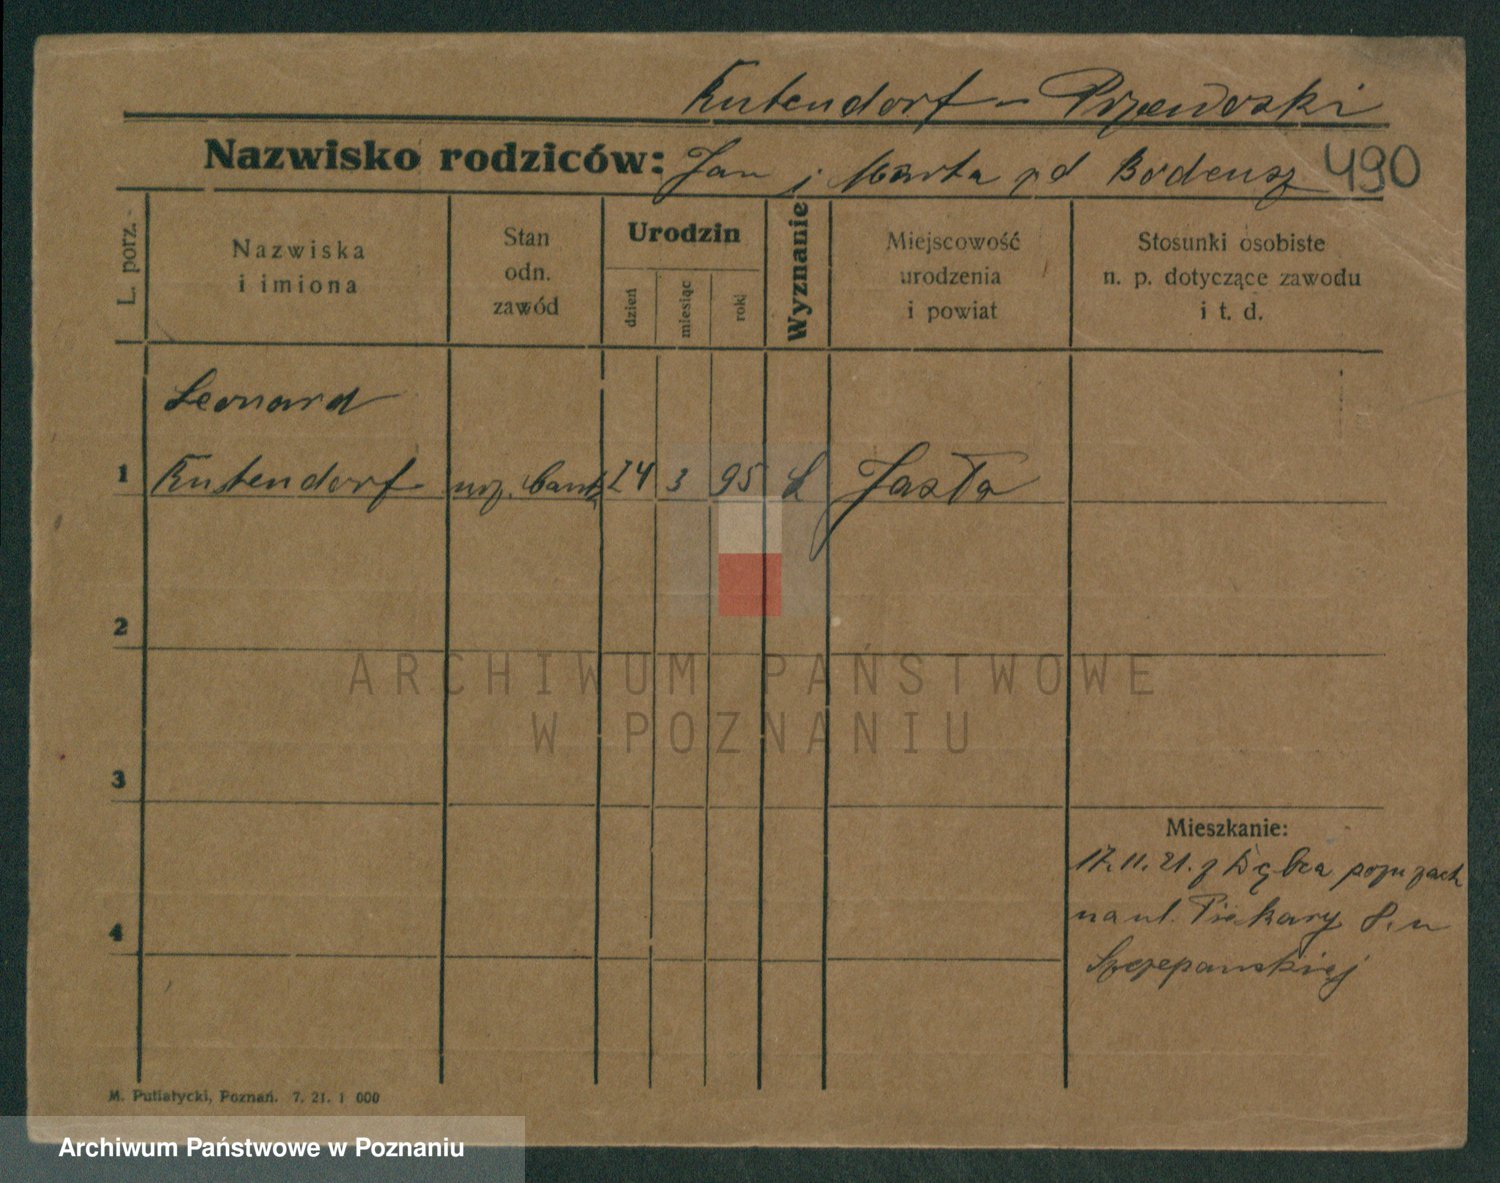 Kutendorf - Przewoski
Nazwisko rodziców: Jan i Marta zd Bodeusz 490
L. porz.
Nazwiska
i imiona
Stan
odn.
zawód
Urodzin
dzień
miesiąc
rok
Wyznanie
Miejscowość
urodzenia
i powiat
Stosunki osobiste
n. p. dotyczące zawodu
i t. d.
Leonard
1 Kutendorf urz. 24 3 95 Jasło
2
3
4
Mieszkanie:
17.11.21. z Dębca
na ul. Piekary 8. u
Szczepanskiej
M. Putiatycki, Poznań. 7. 21. 1 000
ARCHIWUM PAŃSTWOWE
W POZNANIU
Archiwum Państwowe w Poznaniu